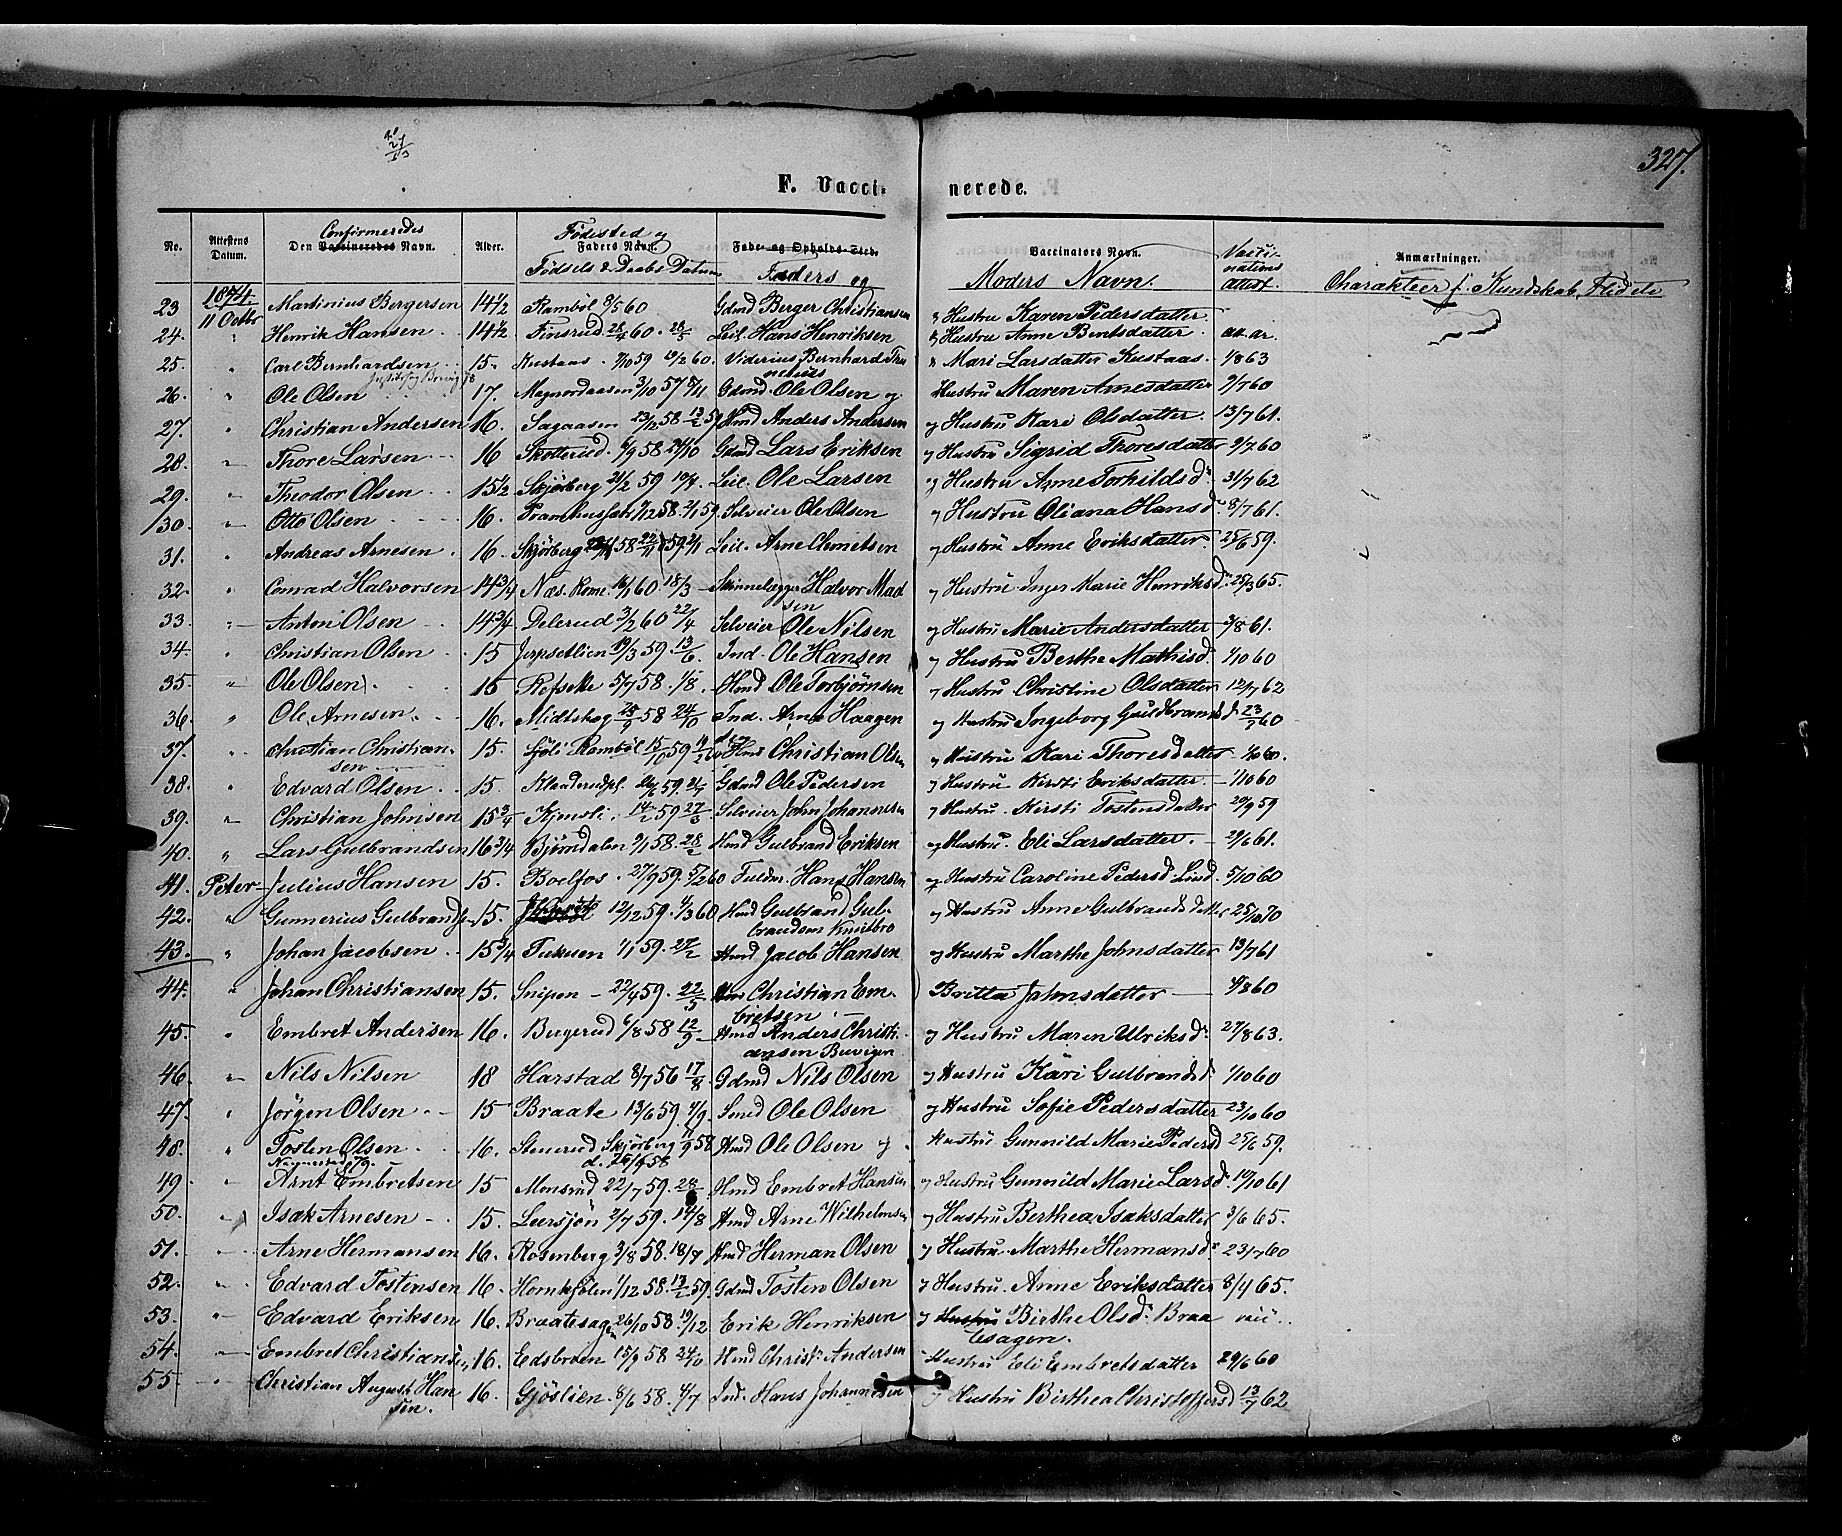 327.
F. Vaccinerede.
No. | Attestens Datum. | Confirmeredes Den Vaccineredes Navn. | Alder. | Fødested og Faders Navn. Fødsels & Daabs Datum | Føde- og Opholds-Sted. Faders og | Vaccinators Navn. Moders Navn. | Vaccinations attest. | Anmærkninger. Charakteer f. Kundskab, Flid etc
23 | 1874. 11 Octbr | Martinius Bergersen | 14 1/2 | Rambøl 8/5 60 | Gdmd Berger Christiansen | Hustru Karen Pedersdatter
24. | " | Henrik Hansen. | 14 1/2 | Finsrud 28/4 60. 28/5 | Leil. Hans Henriksen | Hustru Anne Berntsdatter | att. ar.
25. | " | Carl Bernhardsen | 15. | Kustaas. 9/10 59 19/2 60. | Viderius Bernhard | Mari Larsdatter Kustaas. | 1/8 63
26. | " | Ole Olsen | 17. | Magnordaasen 3/10 57 5/11 | Gdmd. Ole Olsen og | Hustru Maren Arnesdatter | 9/7 60
27. | " | Christian Andersen | 16. | Sagaasen 23/12 58. 13/2 59 | Hmd Anders Andersen | og Hustru Kari Olsdatter. | 13/7 61.
28. | " | Thore Larsen | 16 | Skotterud. 6/9 58 24/10 | Gdmd Lars Eriksen | og Hustru Sigrid Thoresdatter | 9/7 60
29. | " | Theodor Olsen | 15 1/2 | Skjørberg 21/2 59 10/4. | Leil. Ole Larsen | og Hustru Arne Torkildsd. | 31/7 62
30. | " | Otto Olsen | 16. | 9/12 58. 2/1 59. | Selveier Ole Olsen | og Hustru Oliana Hansd. | 8/7 61.
31. | " | Andreas Arnesen | 16. | Skjørberg | Leil. Arne Clemetsen | og Hustru Anne Eriksdatter. | 25/6 59.
32. | " | Conrad Halvorsen | 14 3/4 | Næs. Rome. 16/1 60. 18/3 | Halvor Madsen | og Hustru Inger Marie Henriksd. | 25/3 65.
33. | " | Anton Olsen | 14 3/4 | Delerud 3/2 60 22/4 | Selveier Ole Nilsen | og Hustru Marie Andersdatter | 3/8 61.
34. | " | Christian Olsen | 15 | Jerpsetlien 19/3 59. 13/6. | Ind. Ole Hansen | og Hustru Berthe Mathisd. | 1/10 60
35. | " | Ole Olsen | 15 | Refsette 5/7 58. 1/8. | Hmd Ole Torbjørnsen | og Hustru Christine Olsdatter | 12/7 62
36. | " | Ole Arnesen | 16. | Midtskog 28/9 58 24/10 | Ind. Arne Haagen | og Hustru Ingeborg Guldbrandsd | 23/3 60
37. | " | Christian Christiansen | 15. | Sjøli Rambøl 15/10 59 | Hmd Christian Olsen | og Hustru Kari Thoresdatter | 1/6 60.
38. | " | Edvard Olsen | 15. | Klanderudpl. 26/6 59. | Gdmd Ole Pedersen | og Hustru. Kirsti Eriksdatter. | 1/10 60
39. | " | Christian Johnsen | 15 3/4 | Kjensli. 14/2 59 27/3 | Selveier John Johannesen | og Hustru. Kirsti Tostensdatter | 20/9 59
40. | " | Lars Gulbrandsen | 16 3/4 | Bjørndalen 9/1 58. 28/2 | Hmd Gulbrand Eriksen | og Hustru. Eli Larsdatter. | 29/6 61.
41. | Peter | Julius Hansen | 15. | Boelfos. 27/9 59. 5/2 60 | Hans Hansen | og Hustru Caroline Pedersd. Lund. | 5/10 60
42. | " | Gunnerius Gulbrandsen | 15. | 12/12 59. 4/3 60 | Hmd Gulbrand Gulbrandsen Knutbro | og Hustru Anne Gulbrandsdatter | 25/10 70
43. | " | Johan Jacobsen | 15 3/4 | Tukuen 1/1 59. 27/2 | Hmd Jacob Hansen | og Hustru Marthe Johnsdatter | 13/7 61
44. | " | Johan Christiansen | 15. | Snipen - 22/4 59. 22/5 | Christian Embretsen | Britta Johnsdatter | 4/8 60
45. | " | Embret Andersen | 16. | Bergerud 6/8 58 12/9 | Hmd Anders Christiansen Buvigen | og Hustru Maren Ulriksd. | 27/8 63.
46. | " | Nils Nilsen | 18 | Harstad 8/7 56 17/8 | Gdmd Nils Olsen | og Hustru Kari Gulbrandsd. | 1/10 60
47. | " | Jørgen Olsen | 15 | Braate 13/6 59. 4/9. | Smed Ole Olsen | og Hustru Sofie Pedersdatter | 23/10 60
48. | " | Tosten Olsen | 16. | Stenerud Skjørberg 11/9 58 d. 26/9 58 | Hmd Ole Olsen og | Hustru Gunnild Marie Pedersd | 25/6 59.
49. | " | Arnt Embretsen | 15 | Monsrud 22/7 59. 28/8 | Hmd Embret Hansen | og Hustru Gunnild Marie Larsd. | 19/10 61
50. | " | Isak Arnesen | 15. | Leersjøn 2/7 59. 14/8 | Hmd Arne Wilhelmsen | og Hustru Berthea Isaksdatter | 3/6 65.
51. | " | Arne Hermansen | 16. | Rosenberg 3/8 58. 18/7 | Hmd Herman Olsen | og Hustru Marthe Hermansd. | 23/7 60
52. | " | Edvard Tostensen | 16. | Hornkjølen 1/12 58. 13/2 59. | Gdmd Tosten Olsen | og Hustru. Anne Eriksdatter | 8/4 65.
53. | " | Edvard Eriksen | 16. | Braatesagen 26/10 58. 19/12 | Erik Henriksen | og Hustru Birthe Olsd. Braatesagen.
54. | " | Embret Christiansen | 16. | Edsbroen 15/9 58 24/10 | Hmd Christ. Andersen | Hustru Eli Embretsdatter | 29/6 60
55. | " | Christian August Hansen. | 16. | Gjøslien. 8/6 58. 4/7 | Ind. Hans Johannesen | og Hustru Birthea Christoffersd | 13/7 62